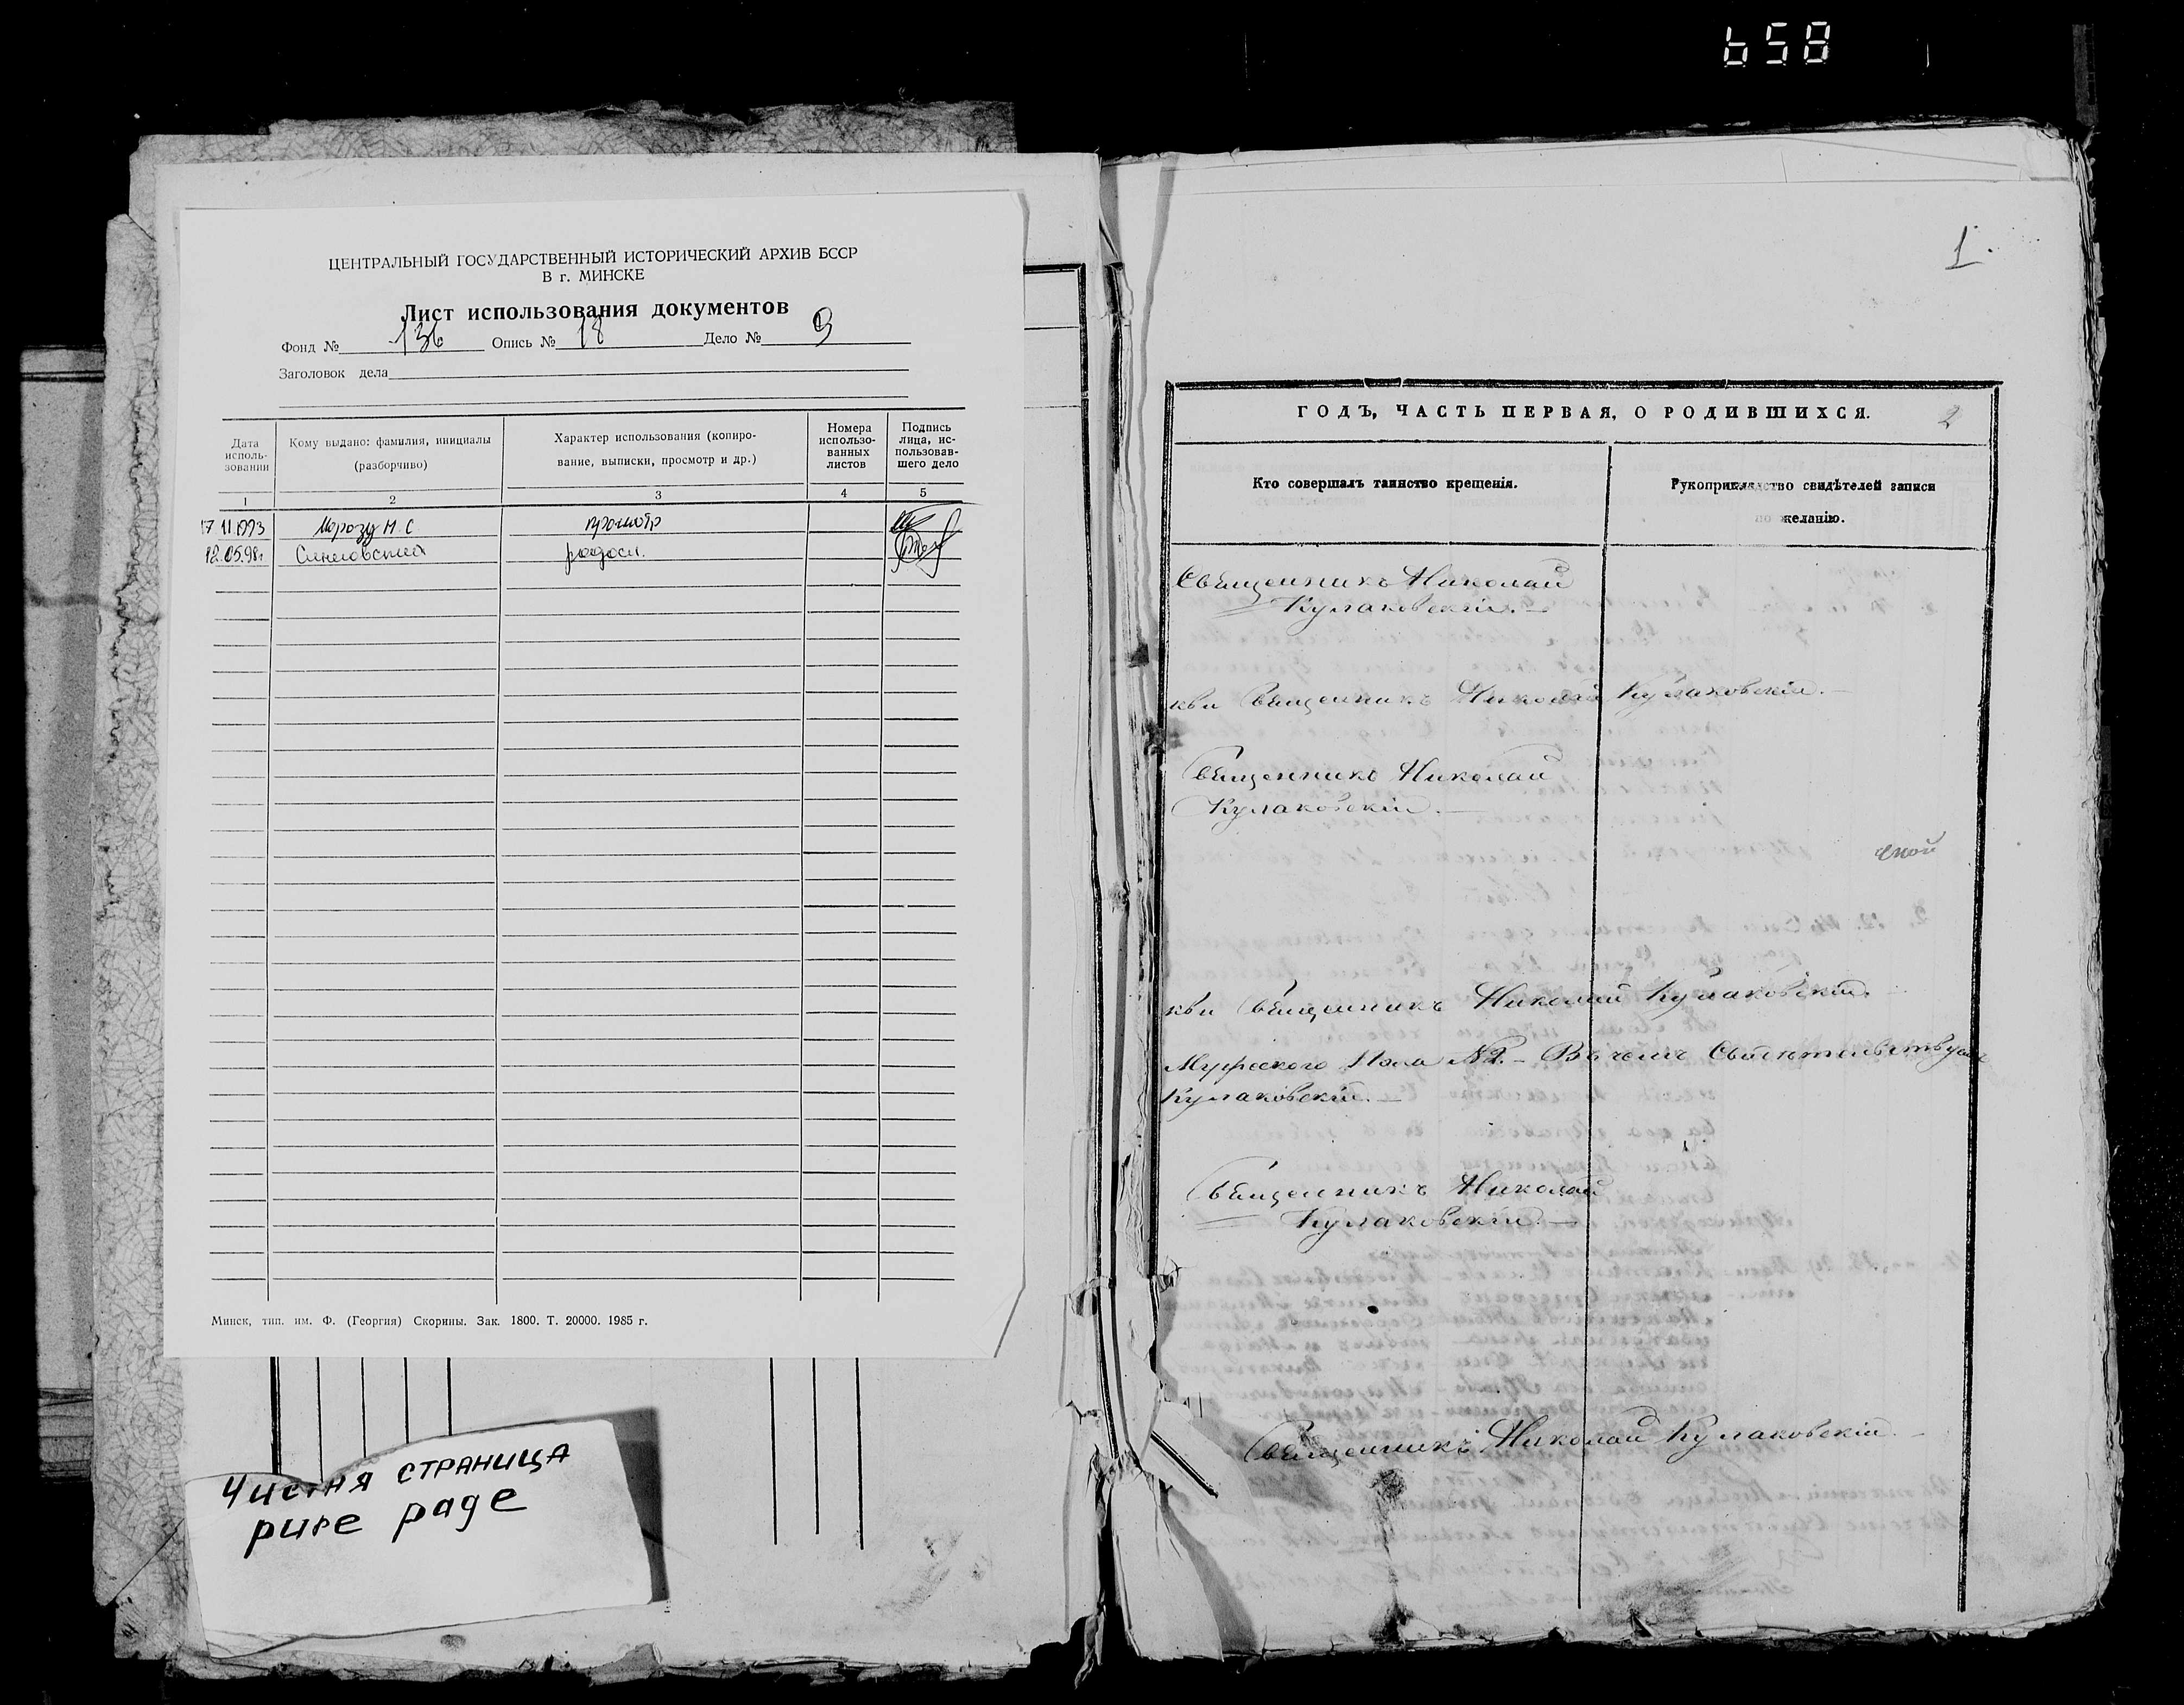 658
ЦЕНТРАЛЬНЫЙ ГОСУДАРСТВЕННЫЙ ИСТОРИЧЕСКИЙ АРХИВ БССР
В г. МИНСКЕ
Лист использования документов
Фонд № 136 Опись № 18 Дело № 9
Заголовок дела
Дата исполь-зовании
Кому выдано: фамилия, инициалы
(разборчиво)
Характер использования (копиро-
вание, выписки, просмотр и др.)
Номера
использо-
ванных
листов
Подпись
лица, ис-
пользовав-
шего дело
1 2 3 4 5
17.11.1993 Морозу М. С просмотр
12.05.98г.
Минск, тип. им. Ф. (Георгия) Скорины. Зак. 1800. Т. 20000. 1985 г.
Чистая страница
pure page
1.
ГОДЪ, ЧАСТЬ ПЕРВАЯ, О РОДИВШИХСЯ.
2
Кто совершалъ таинство крещенія.
Рукоприкладство свидѣтелей записи
по желанію.
Священникъ Николай
Кулаковскій. —
кви Священникъ Николай Кулаковскій. —
Священникъ Николай
Кулаковскій. —
ской
кви Священникъ Николай Кулаковскій. —
Мужескаго Пола № 2. – Въ чемъ
Кулаковскій. —
Священникъ Николай
Кулаковскій. —
Священникъ Николай Кулаковскій. —